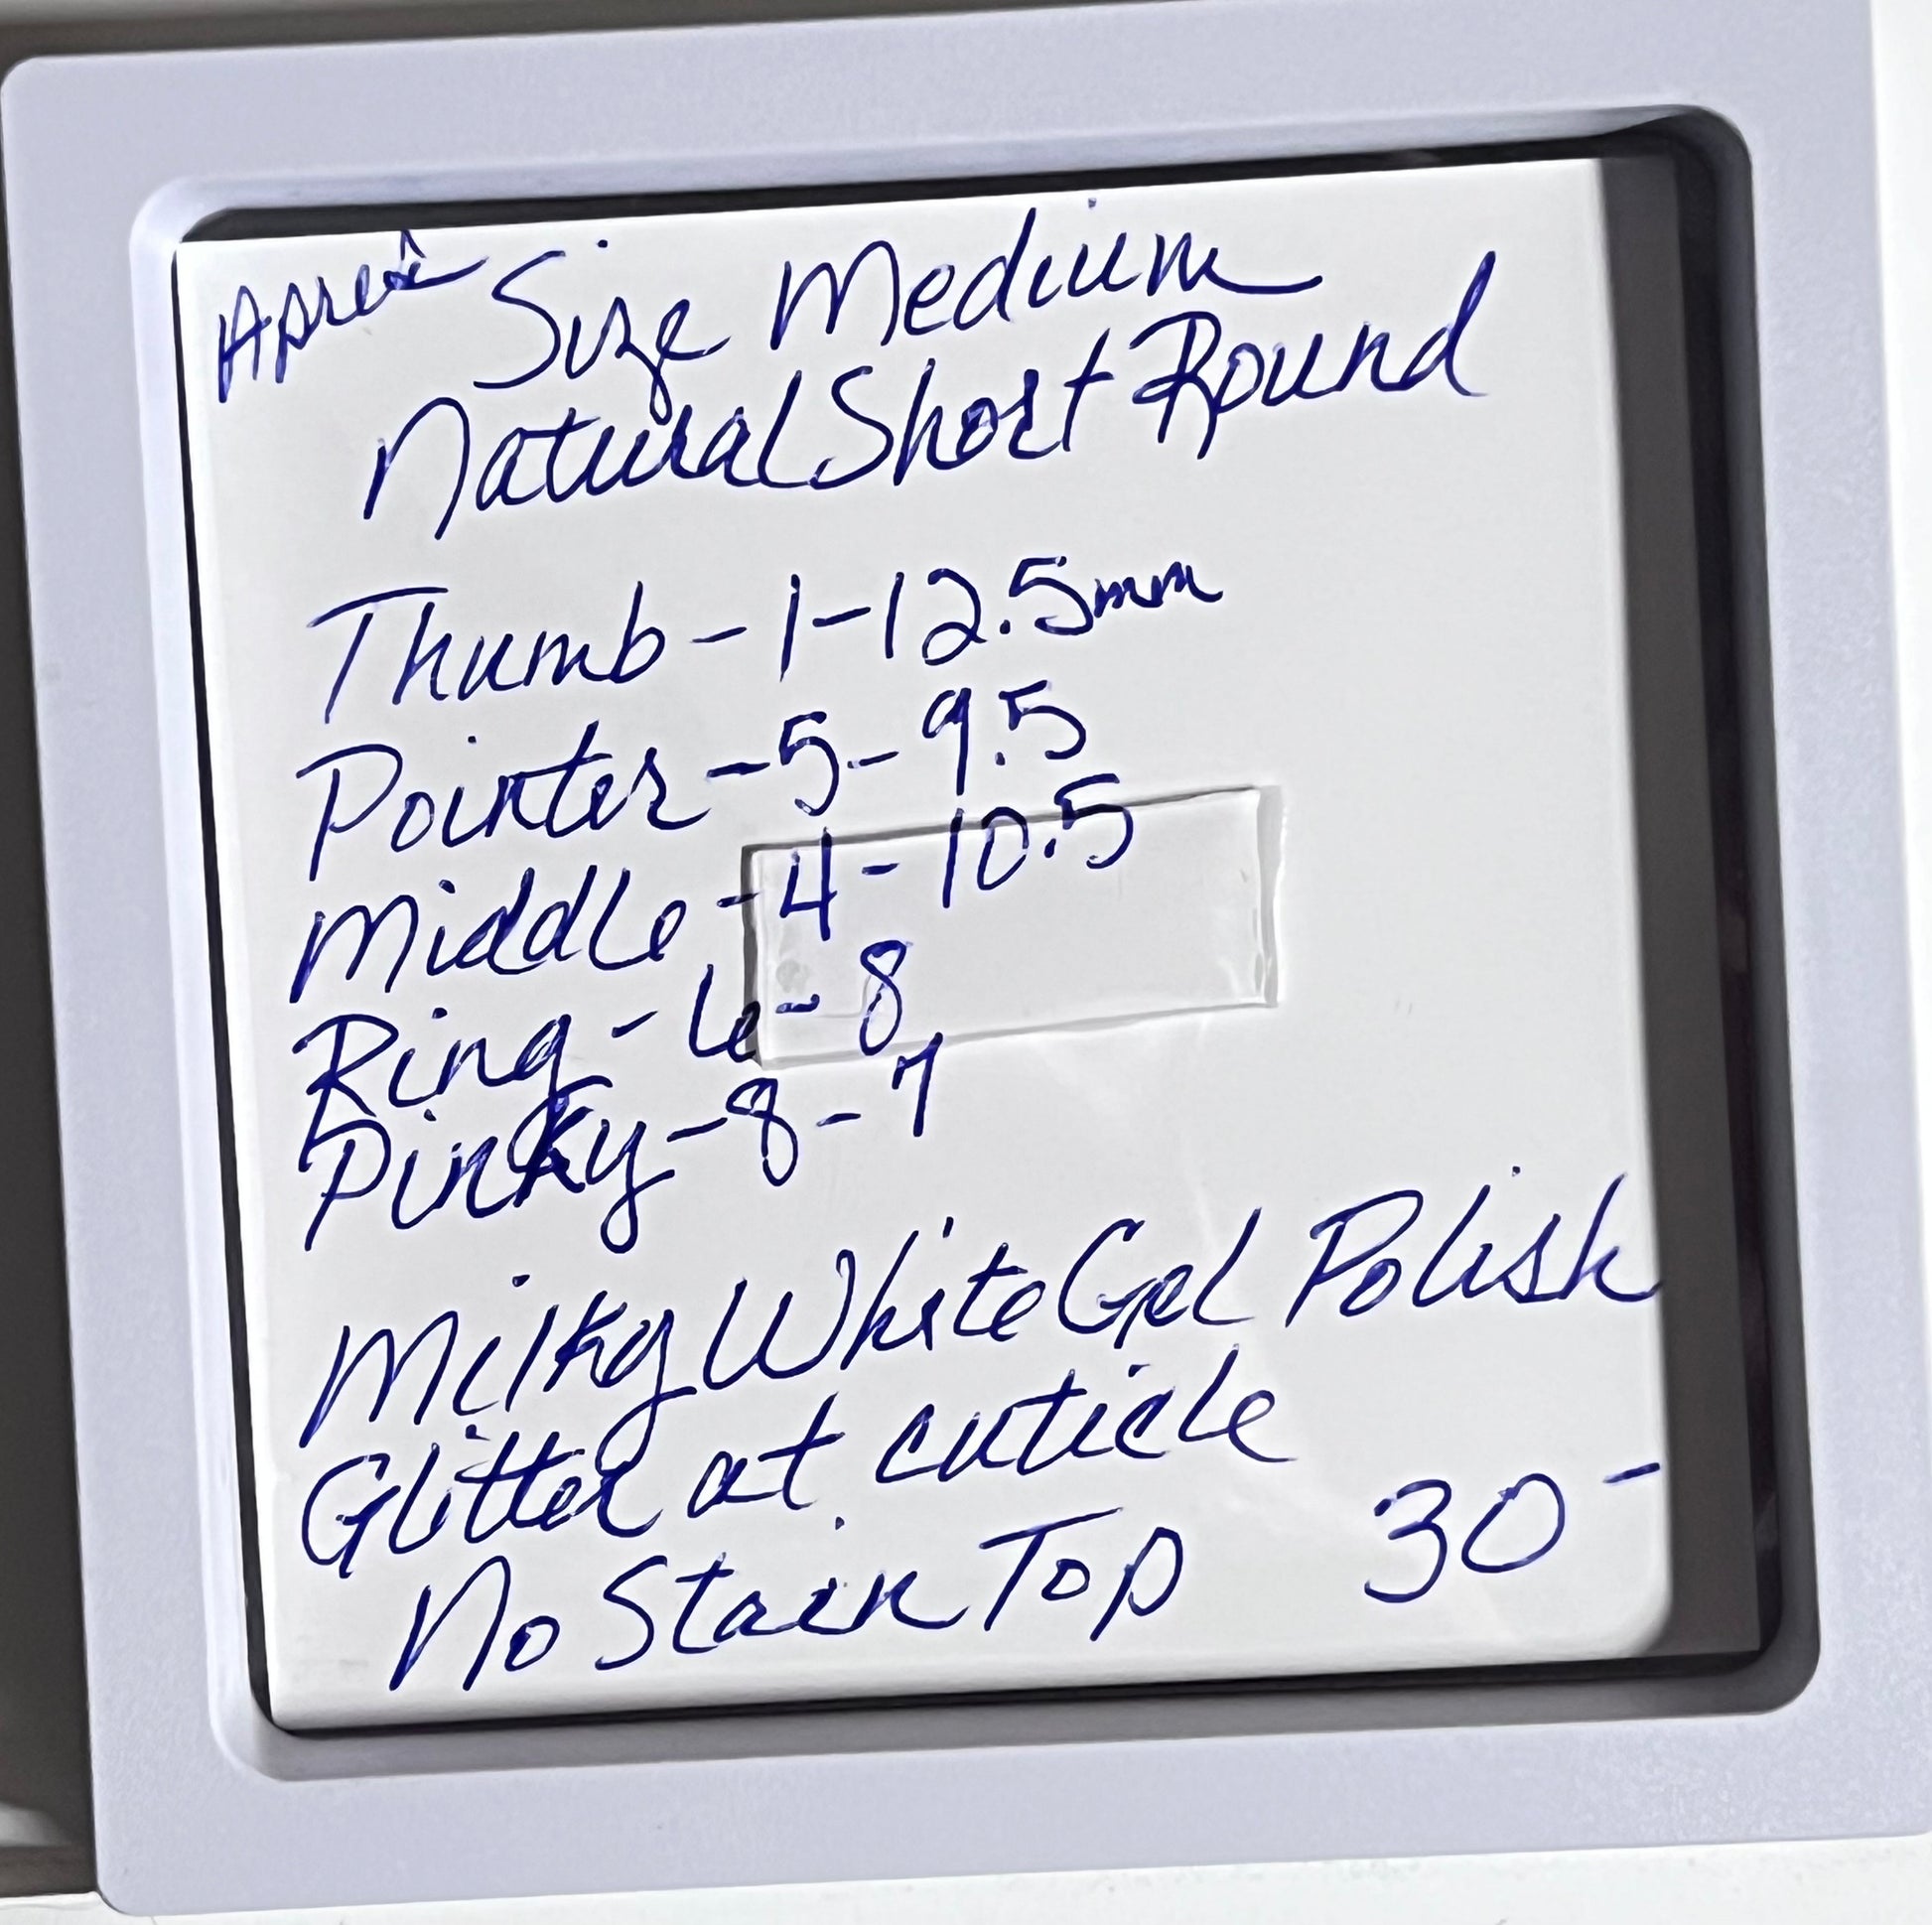 Apresè Size Medium
Natural Short Round
Thumb - 1 - 12.5mm
Pointer - 5 - 9.5
Middle - 4 - 10.5
Ring - 6 - 8
Pinky - 8 - 7
Milky White Gel Polish
Glitter at cuticle
No Stain Top 30-